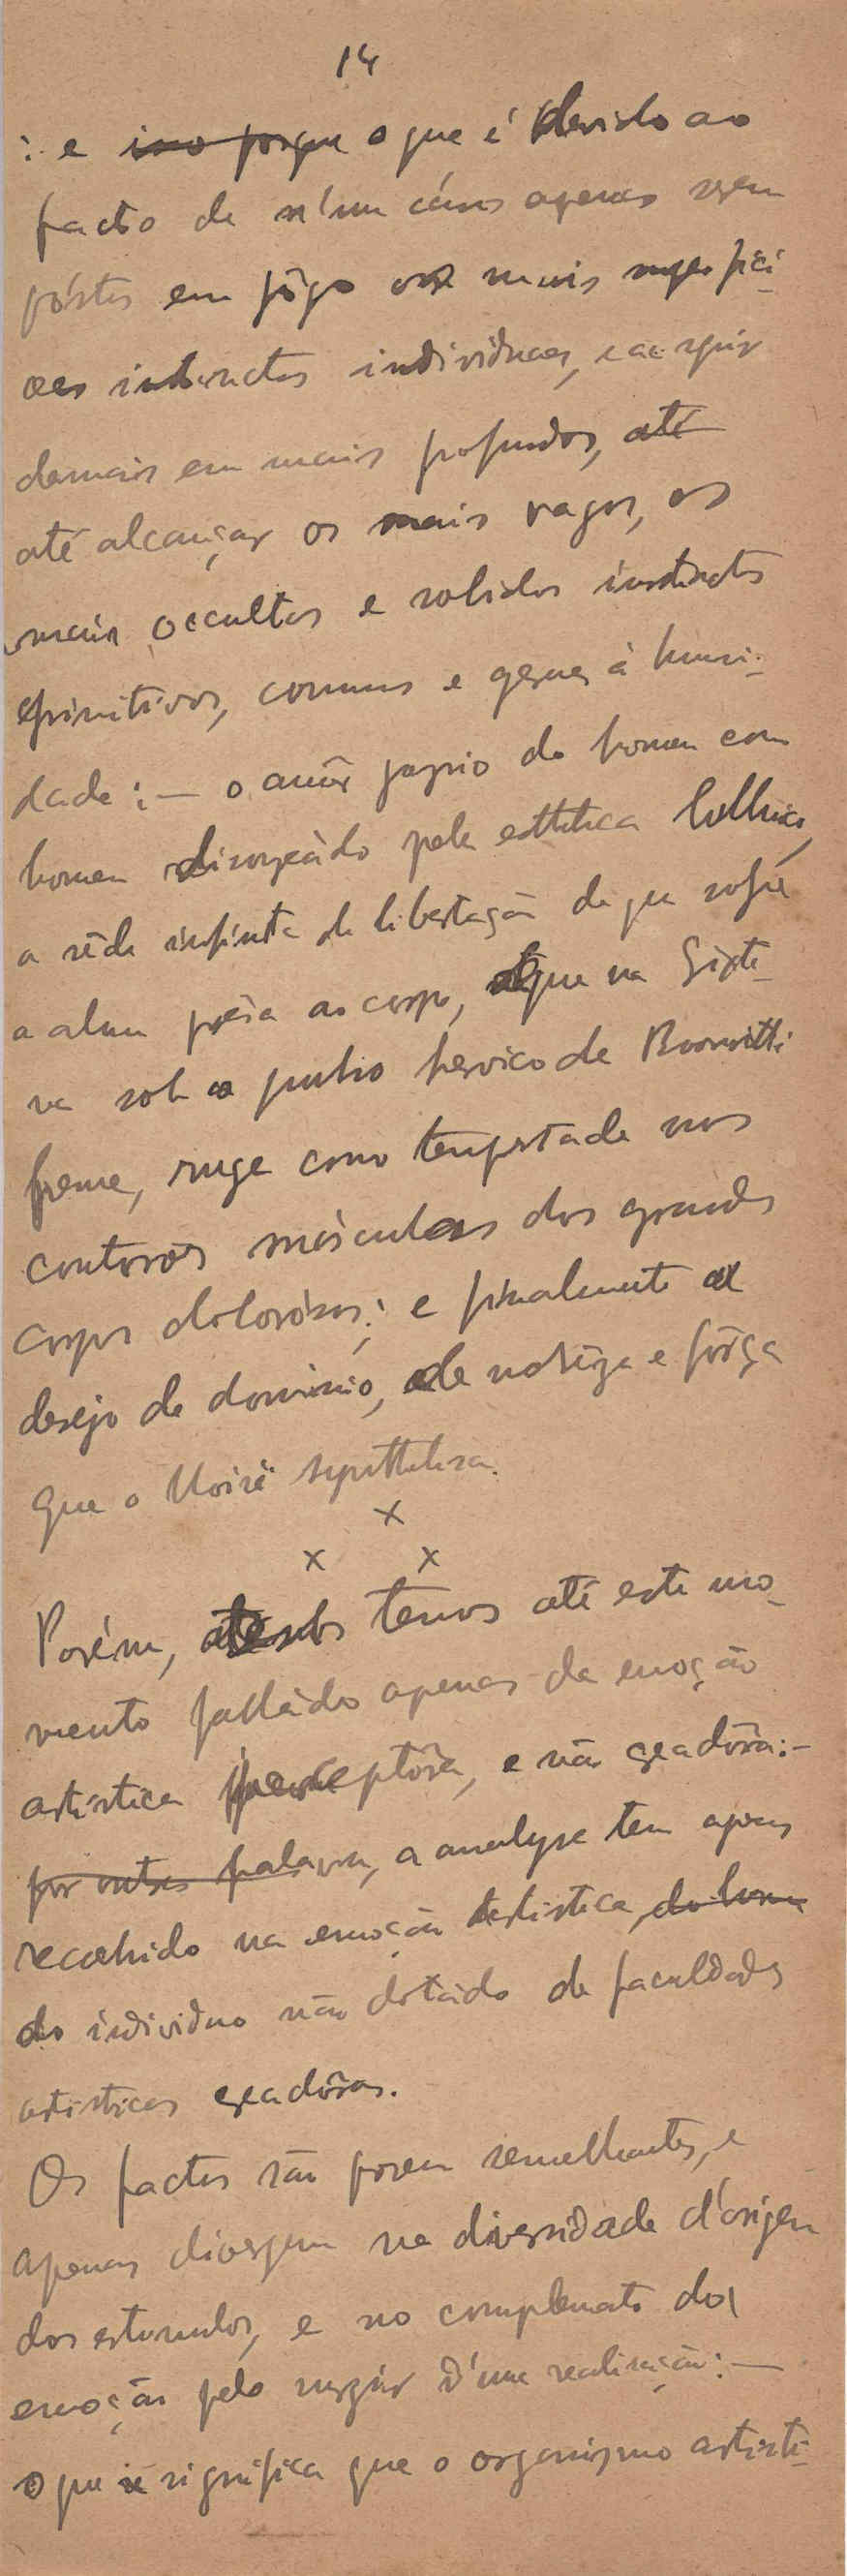 14
: e isso porque o que é devido ao
facto de n'um cáso apenas serem
póstos em jôgo os mais superfici-
aes instinctos individuaes, e a seguir
demais em mais profundos, até
até alcançar os mais vagos, os
mais occultos e solidos instinctos
primitivos, comuns e geraes á humani-
dade: — o amôr proprio do homem com
homem lisongeádo pela esthetica hellenica,
a sêde infinita de libertação de que sofre
a alma prêsa ao corpo, que na Sixti-
na sob o pulso heroico de Buonarotti
freme, ruge como tempestade nos
contornos másculos dos grandes
corpos dolorósos; e finalmente o
desejo de dominio, de nobrêza e fôrça
que o Moisés synthetisa.
x
x x
Porém, temos até este mo-
mento falládo apenas da emoção
artistica perceptôra, e não creadôra: -
por outras palavras, a analyse tem apenas
recahido na emoção artistica, do homem
do individuo não dotádo de faculdades
artisticas creadôras.
Os factos são porem semelhantes, e
apenas divergem na diversidade d'origem
dos estimulos, e no complemento da
emoção pelo surgir d'uma realisação: —
O que significa que o organismo artisti-